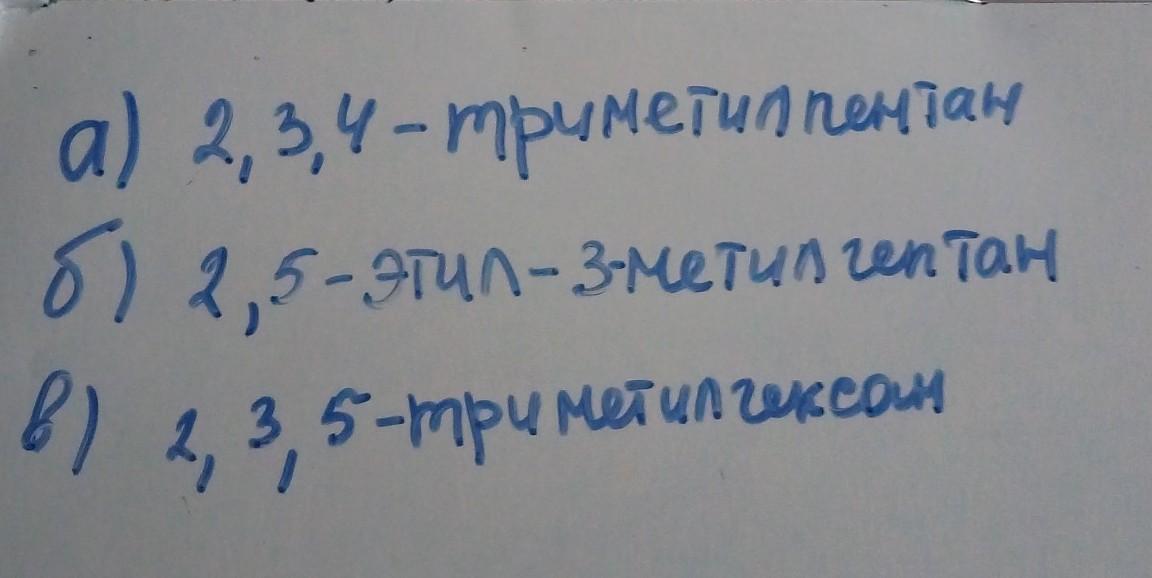 а) 2,3,4-триметилпентан
б) 2,5-этил-3-метилгептан
в) 2,3,5-триметилгексан